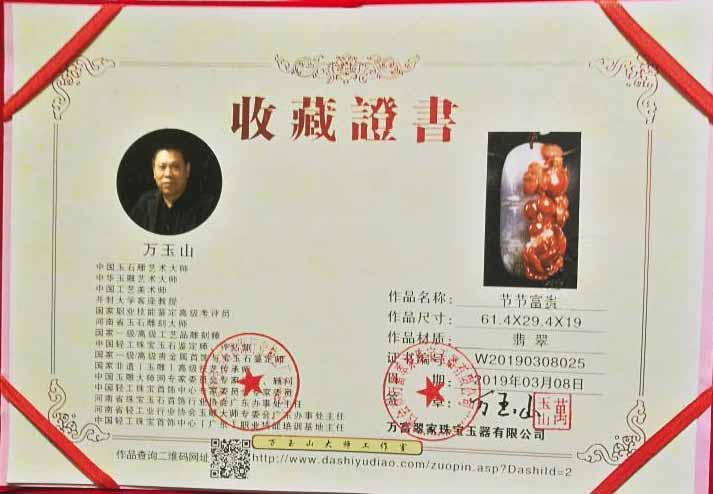 收藏證書
万玉山
中国玉石雕艺术大师
中华玉雕艺术大师
中国工艺美术师
开封大学客座教授
国家职业技能鉴定高级考评员
河南省玉石雕刻大师
国家一级/高级工艺品雕刻师
中国轻工珠宝玉石鉴定师
国家一级/高级贵金属首饰与宝玉石鉴定师
国家非遗(玉雕)高级技艺传承师
中国玉雕大师网专家委员会专家 顾问
中国轻工珠宝首饰中心专家委员会专家委员
河南省珠宝玉石首饰行业协会广东办事处主任
河南省轻工业行业协会玉雕大师专委会广东办事处主任
中国轻工珠宝首饰中心(广东)职业技能培训基地主任
作品名称: 节节富贵
作品尺寸: 61.4X29.4X19
作品材质: 翡翠
证书编号: W20190308025
日 期: 2019年03月08日
签 章: 万玉山
万富翠家珠宝玉器有限公司
万玉山大师工作室
作品查询二维码网址 http://www.dashiyudiao.com/zuopin.asp?DashiId=2